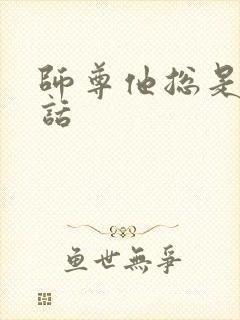 師尊他總是
話
鱼世無爭